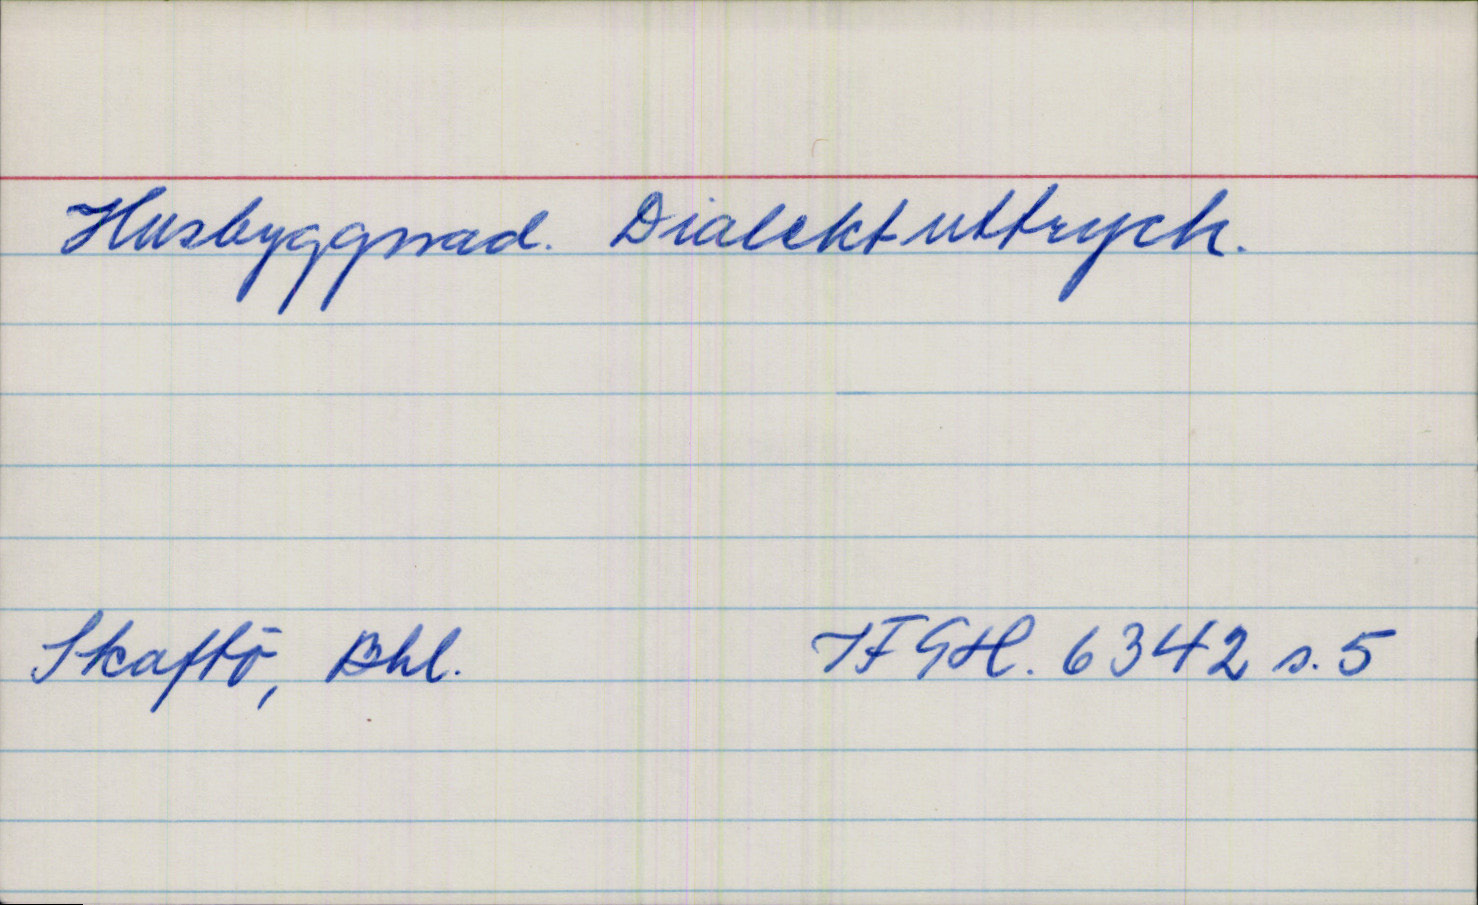 Husbyggnad. Dialektuttryck.
Skaftö, Bhl. IFGH. 6342 s. 5